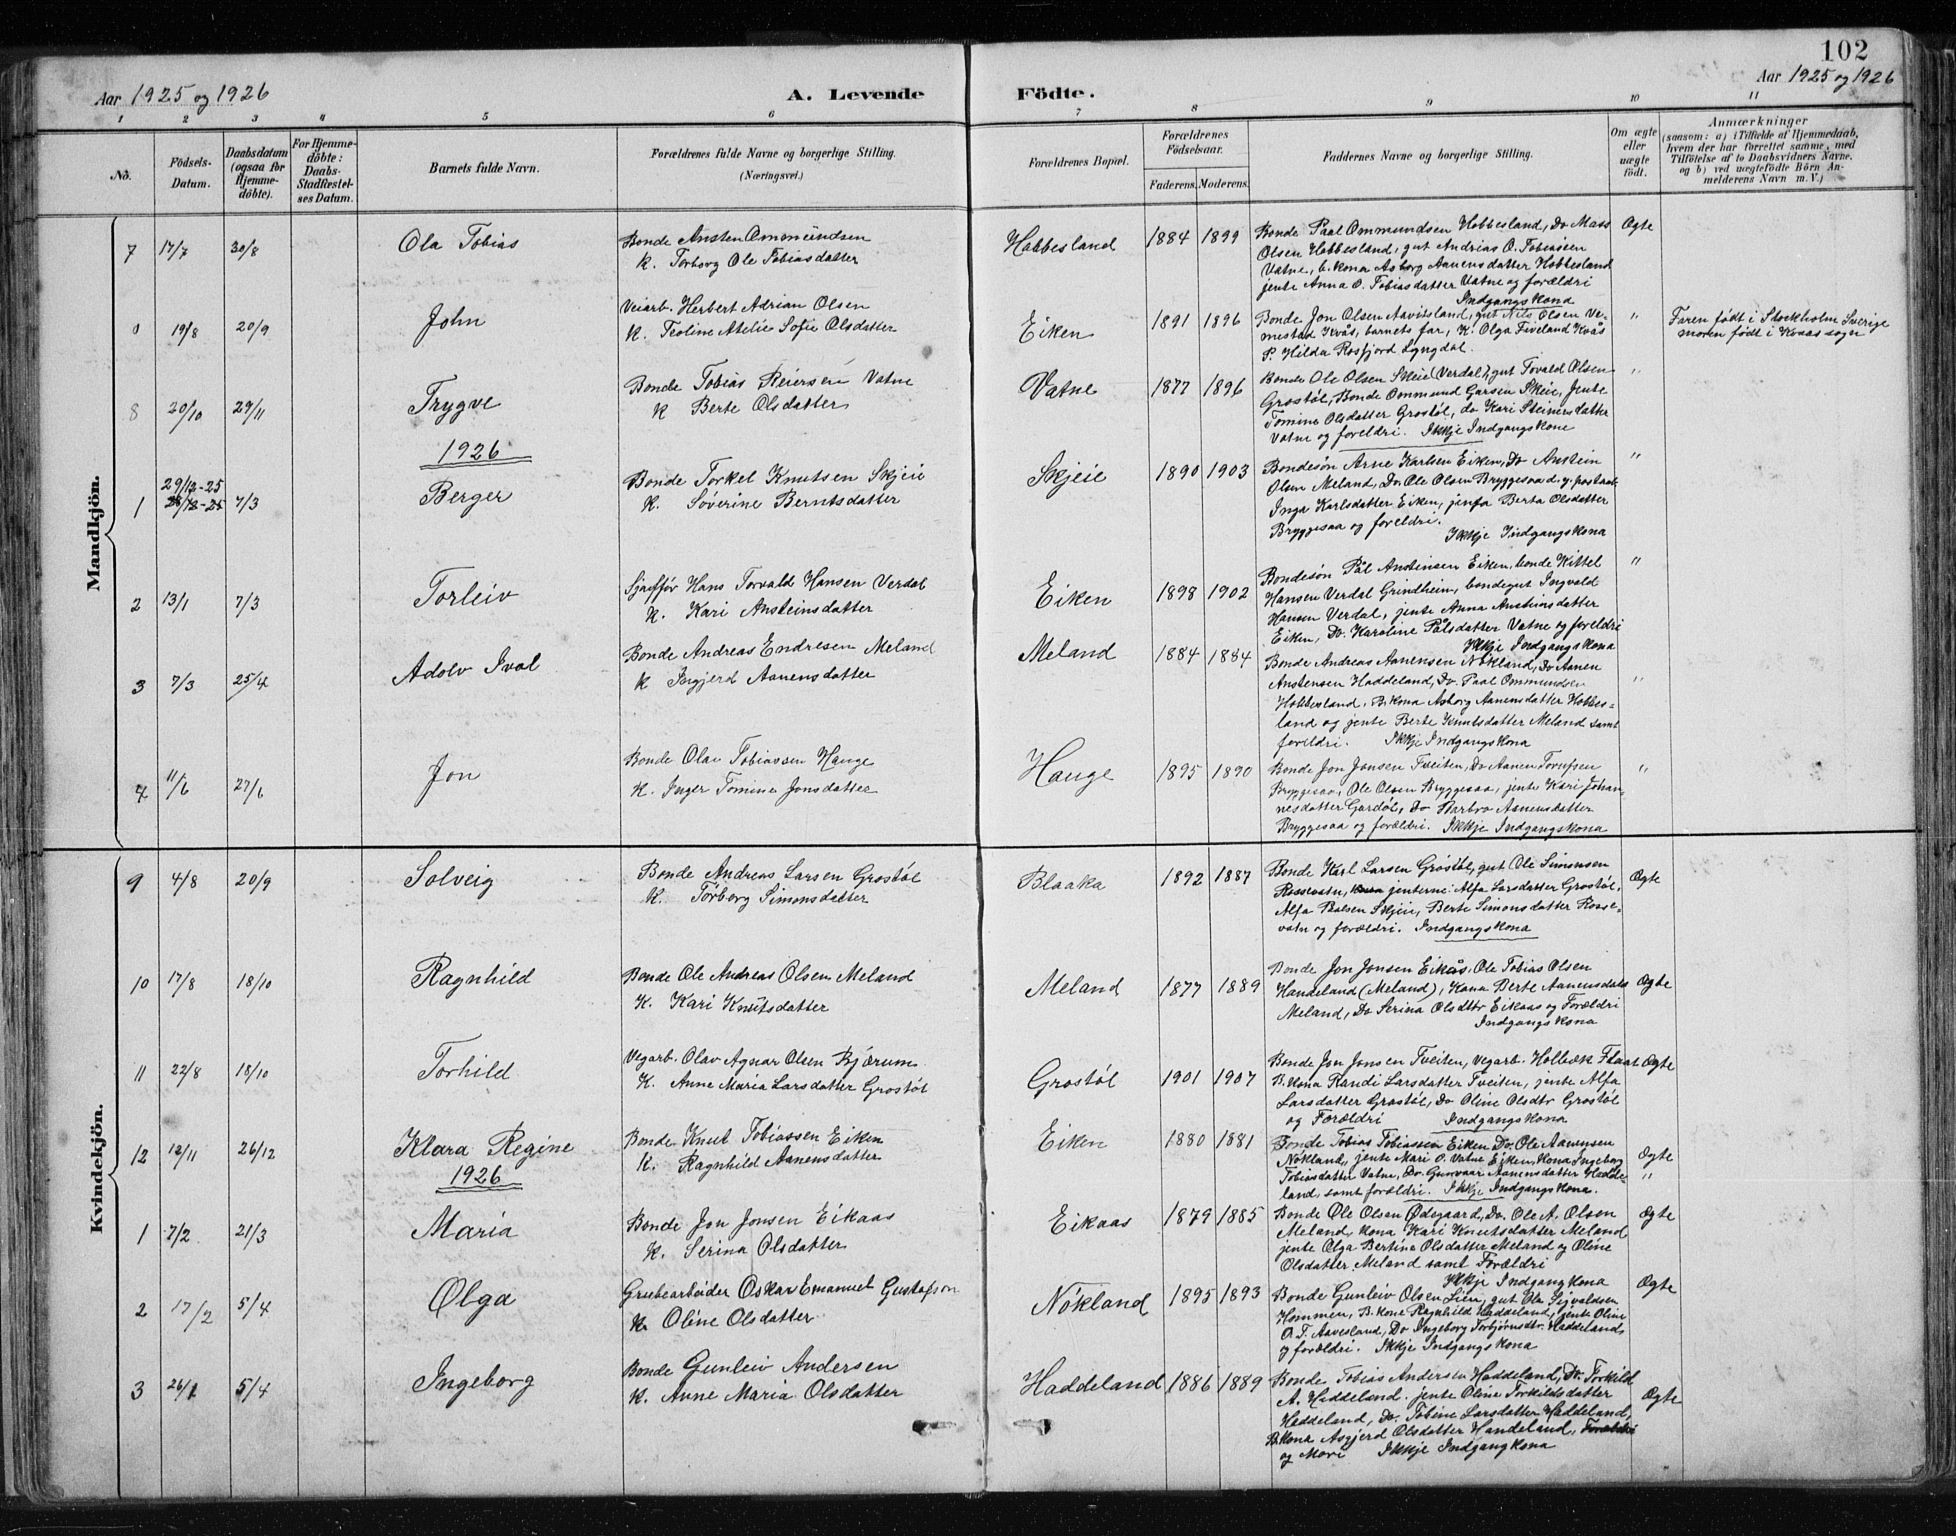 102
Aar 1925 og 1926
A. Levende Födte.
Aar 1925 og 1926
1 2 3 4 5 6 7 8 9 10 11
No.
Födsels-Datum.
Daabsdatum (ogsaa för Hjemme-döbte).
For Hjemme-döbte: Daabs-Stadfæstel-ses Datum.
Barnets fulde Navn.
Forældrenes fulde Navne og borgerlige Stilling.
(Næringsvei.)
Forældrenes Bopæl.
Forældrenes Födselsaar.
Faderens. Moderens.
Faddernes Navne og borgerlige Stilling.
Om ægte eller uægte födt.
Anmærkninger
(saasom: a) i Tilfælde af Hjemmedaab, hvem der har forrettet samme, med Tilföielse af to Daabsvidners Navne, og b) ved uægtefödte Börn An-melderens Navn m. V.)
Mandkjön.
7 17/7 30/8 Ola Tobias
Bonde Ansten Ommundsen
K. Torborg Ole Tobiasdatter
Hobbesland 1884 1899
Bonde Paal Ommundsen Hobbesland, Do Mass
Olsen Hobbesland, gut Andrias O. Tobiassen
Vatne, b. kona Asborg Aanensdatter Hobbesland
jente Anna O. Tobiasdatter Vatne og forældri
Indgangskona
Ægte
19/8 20/9 John
Veiarb. Herbert Adrian Olsen
K. Teoline Atelie Sofie Olsdatter
Eiken 1891 1896
Bonde Jon Olsen Aavitsland, gut Nils Olsen Ve-
mestad Kvås, barnets far, K. Olga Fiveland Kvås
P. Hilda Rosfjord Lyngdal.
"
Faren født i Stockholm Sverige
moren født i Kvaas sogn
8 20/10 29/11 Trygve
Bonde Tobias Reiersen Vatne
K Berte Olsdatter
Vatne 1877 1896
Bonde Ole Olsen Skeie (Verdal), gut Torvald Olsen
Grostøl, Bonde Ommund Garsen Skeie, Jente
Tomine Olsdatter Grostøl, do Kari Steinersdatter
Vatne og foreldri. Ikkje Indgangskone
"
1926
1 29/12-25 7/3 Berger
Bonde Torkel Knutsen Skjeie
K. Søverine Berntsdatter
Skjeie 1890 1903
Bondesøn Arne Karlsen Eiken, Do Anstein
Olsen Meland, Do. Ole Olsen Bryggesaa d.y.
Inga Karlsdatter Eiken, jenta Berta Olsdatter
Bryggesaa og foreldri.
Ikkje Indgangskona
"
2 13/1 7/3 Torleiv
Sjaffør Hans Torvald Hansen Verdal
K. Kari Ansteinsdatter
Eiken 1898 1902
Bondesøn Pål Anstinsen Eiken, bonde Kittel
Hansen Verdal Grindheim, bondegut Ingvald
Hansen Verdal, jente Anna Anstinsdatter
Eiken, Do. Karoline Pålsdatter Vatne og foreldri
Ikkje Indgangskona
"
3 7/3 25/4 Adolv Ival
Bonde Andreas Endresen Meland
K Ingjerd Aanensdatter
Meland 1884 1884
Bonde Andreas Aanensen Nökland, Do Aanen
Anstensen Haddeland, Do. Paal Ommundsen
Hobbesland, B.kona Asborg Aanensdatter Hobbes-
land og jente Berte Knutsdatter Meland samt
foreldri. Ikkje Indgangskona
"
4 11/6 27/6 Jon
Bonde Olav Tobiassen Hauge
K. Inger Tomine Jonsdatter
Hauge 1895 1890
Bonde Jon Jonsen Tveiten, Do Aanen
Bryggesaa, Ole Olsen Bryggesaa, jente Kari Johan-
nesdatter Gardøl, Do Barbro Aanensdatter
Bryggesaa og forældri. Ikkje Indgangskona
"
Kvindekjön.
9 4/8 20/9 Solveig
Bonde Andreas Larsen Grostøl
K. Tørborg Simonsdatter
Blaaka 1892 1887
Bonde Karl Larsen Grostøl, gut Ole Simonsen
Rossevatn, jenterne: Alfa Larsdatter Grostøl,
Alfa Paalsen Skjeie, Berte Simonsdatter Rosse-
vatn og forældri. Indgangskona
Ægte
10 17/8 18/10 Ragnhild
Bonde Ole Andreas Olsen Meland
K. Kari Knutsdatter
Meland 1877 1889
Bonde Jon Jonsen Eikås, Ole Tobias Olsen
Handeland (Meland), Kona Berte Aanensdatr
Meland, Do Serina Olsdtr Eikaas og Forældri
Indgangskona
Ægte
11 22/8 18/10 Torhild
Vegarb. Olav Agnar Olsen Bjærum
K. Anne Maria Larsdatter Grostøl
Grostøl 1901 1907
Bonde Jon Jonsen Tveiten, vegarb. Holbæk Flaat
B. kona Randi Larsdatter Tveiten, jente Alfa
Larsdatter Grostøl, Do Oline Olsdtr Grostøl
og Forældri Indgangskona
Ægte
12 12/11 26/12 Klara Regine
Bonde Knut Tobiassen Eiken
K. Ragnhild Aanensdatter
Eiken 1880 1881
Bonde Tobias Tobiassen Eiken Do, Ole Aanensen
Nökland, jente Mari O. Vatne Eiken, Kona Ingeborg
Tobiasdatter Vatne, Do. Gunvaar Aanensdatter Hadde-
land, samt forældri. Ikkje Indgangskona.
Ægte
"
1926
1 7/2 21/3 Maria
Bonde Jon Jonsen Eikaas
K. Serina Olsdatter
Eikaas 1879 1885
Bonde Ole Olsen Ødegaard, Do. Ole A. Olsen
Meland, kona Kari Knutsdatter Meland
jente Olga Bertina Olsdatter Meland og Oline
Olsdatter Meland samt Forældri
Ikkje Indgangkona
Ægte
2 17/2 5/4 Olga
Grubearbeider Oskar Emanuel Gustafson
K. Oline Olsdatter
Nökland 1895 1893
Bonde Gunleiv Olsen Lien, gut Ola Sigvaldsen
Hommen, B. kone Ragnhild Haddeland, jente Oline
O.T. Aavesland, Do Ingeborg Torbjørnsdtr. Haddeland,
og forældri. Ikkje Indgangskona
Ægte
3 26/1 5/4 Ingeborg
Bonde Gunleiv Andersen
K. Anne Maria Olsdatter
Haddeland 1886 1889
Bonde Tobias Andersen Haddeland, Do. Torkild
A. Haddeland, jente Oline Torkildsdatter
Haddeland, Do. Tobine Larsdatter Haddeland,
B.kona Asgjerd Olsdatter Handeland, Forældri
og Mori Ikkje Indgangkona
Ægte